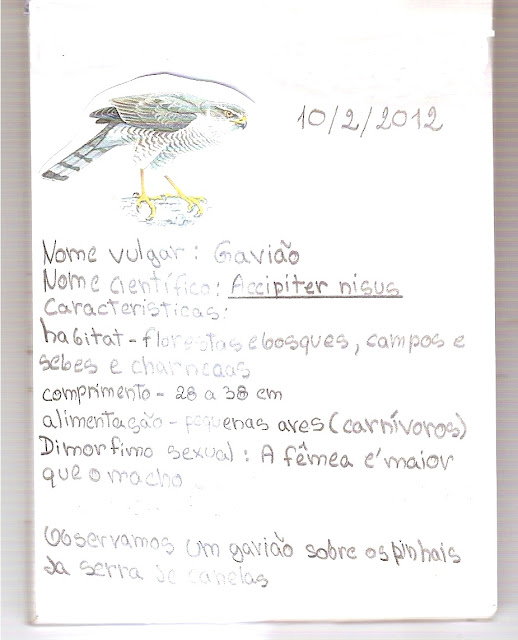 10/2/2012
Nome vulgar: Gavião
Nome científico: Accipiter nisus
Características:
habitat - florestas e bosques, campos e
sebes e charnecas
comprimento - 28 a 38 cm
alimentação - pequenas aves (carnívoros)
Dimorfimo sexual: A fêmea é maior
que o macho
Observamos um gavião sobre os pinhais
da serra de canelas